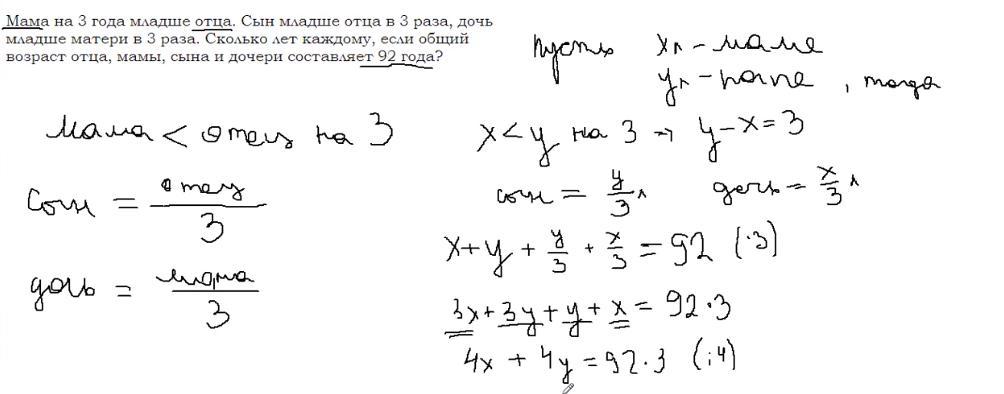 Мама на 3 года младше отца. Сын младше отца в 3 раза, дочь
младше матери в 3 раза. Сколько лет каждому, если общий
возраст отца, мамы, сына и дочери составляет 92 года?
Мама < отец на 3
Сын = отец/3
дочь = мама/3
пусть x л - маме
y л - папе, тогда
x < y на 3 → y - x = 3
сын = y/3 л дочь = x/3 л
x + y + y/3 + x/3 = 92 (·3)
3x + 3y + y + x = 92·3
4x + 4y = 92·3 (:4)